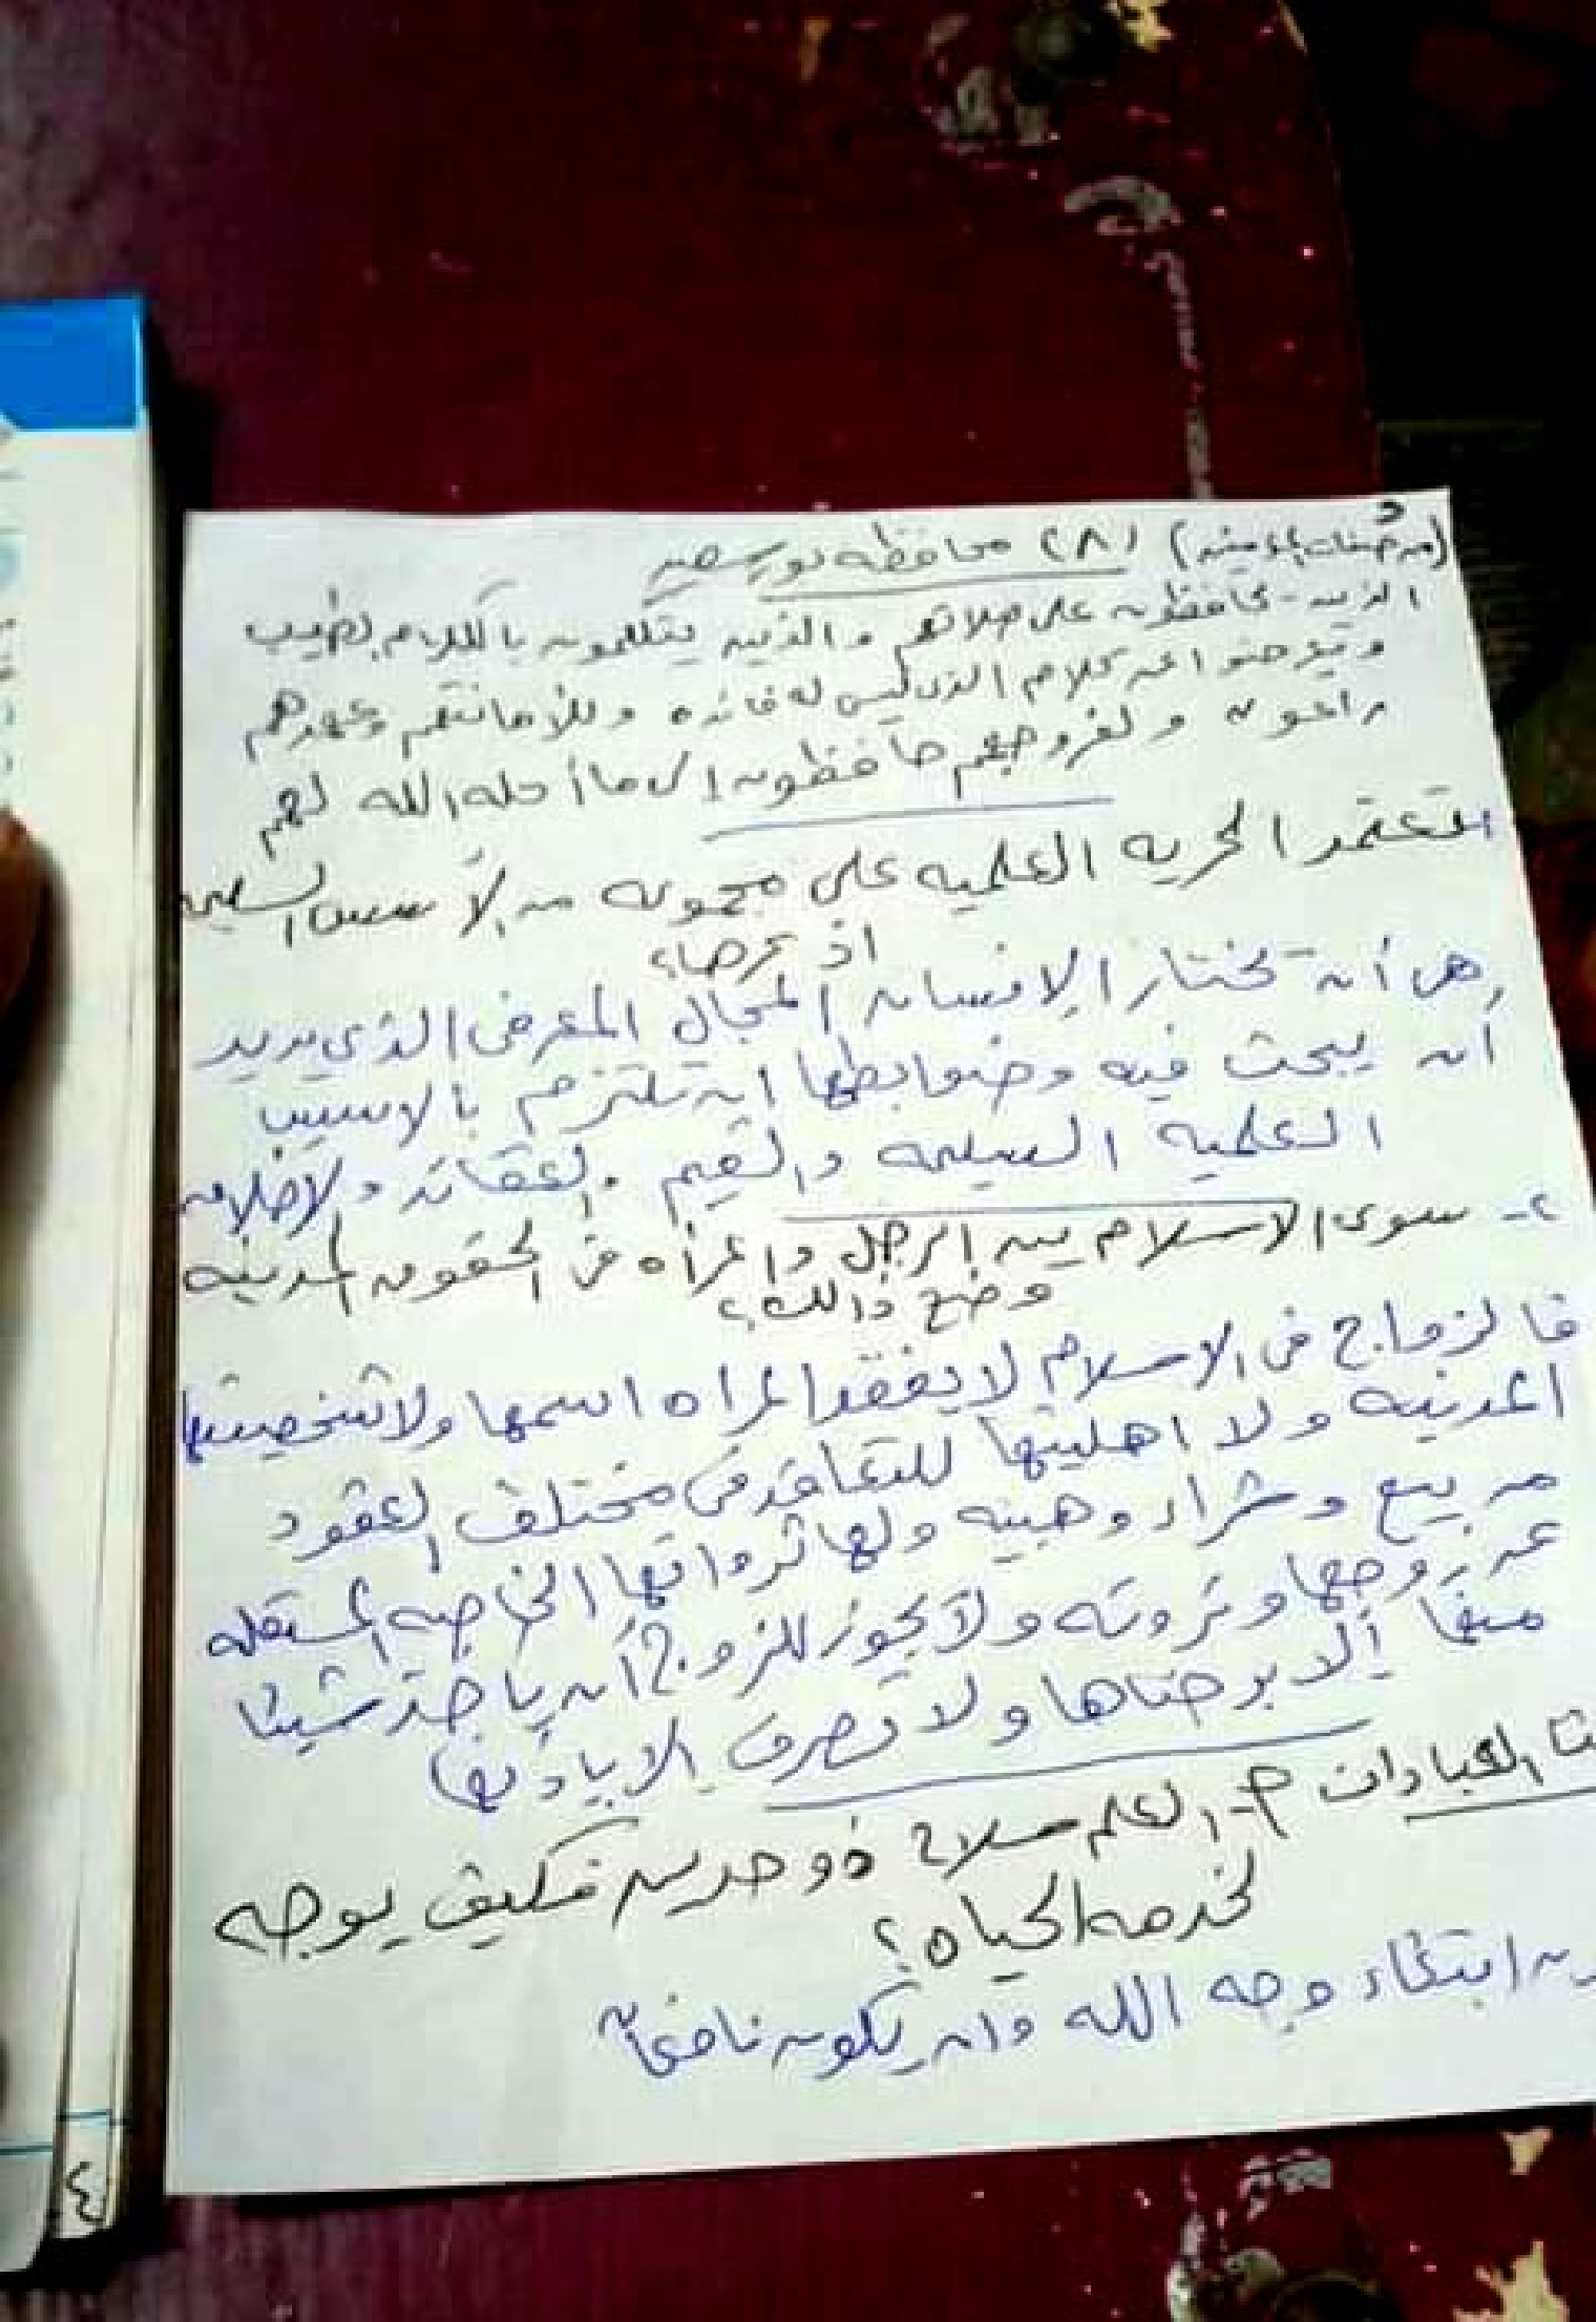 (من صفات المؤمنين) (٨) محافظه بور سعيد
الذين يحافظون على صلاتهم والذين يتكلمون بالكلام الطيب
ويعرضوا عن كلام الذى ليس له فائده وللأمانتهم وعهدهم
راعون ولفروجهم حافظون إلا ما أحله الله لهم
تعتمد الحريه العلميه على مجموعه من الأسس السليمه
اذكرها؟
هى أن تختار الإنسان المجال المعرفى الذى يريد
أن يبحث فيه وضوابطها ان تلتزم بالاسس
العلميه السليمه والقيم العقائد والاخلاق
٢- سوى الاسلام بين الرجل والمرأه فى الحقوق المدنيه
وضح ذالك؟
فالزواج فى الاسلام لا يفقد المراه اسمها ولا شخصيتها
المدنيه ولا اهليتها للتعاقد فى مختلف العقود
من بيع وشراء وهبيه ولها ثرواتها الخاصه المستقله
عن زوجها وثروته ولا يجوز للزوج أن ياخذ شيئا
منها إلا برضاها ولا تصرف الا باذنها
العبادات ٣- العلم سلاح ذو حدين فكيف يوجه
لخدمه الحياه؟
ابتغاء وجه الله وان يكون نافعاً
٤